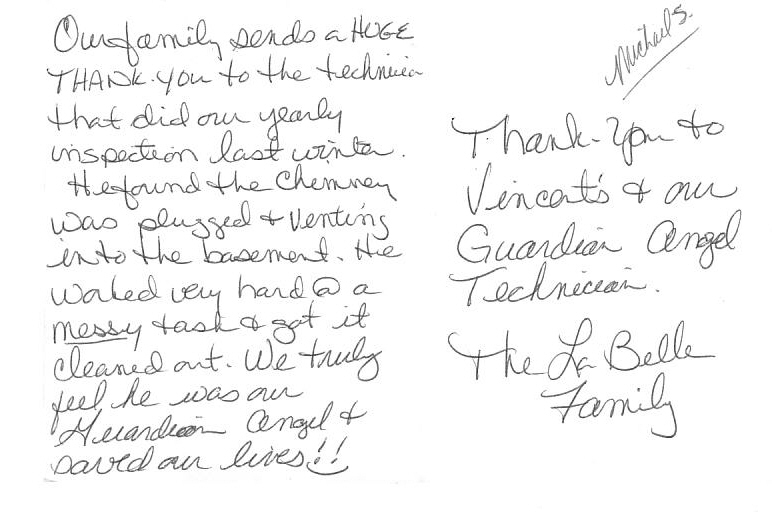 Our family sends a HUGE
THANK-YOU to the technician
that did our yearly
inspection last winter.
He found the Chemney
was plugged & venting
into the basement. He
worked very hard @ a
messy task & got it
cleaned out. We truly
feel he was our
Guardian angel &
saved our lives!!
Michael S.
Thank-You to
Vincent's & our
Guardian Angel
Technician.
The La Belle
Family